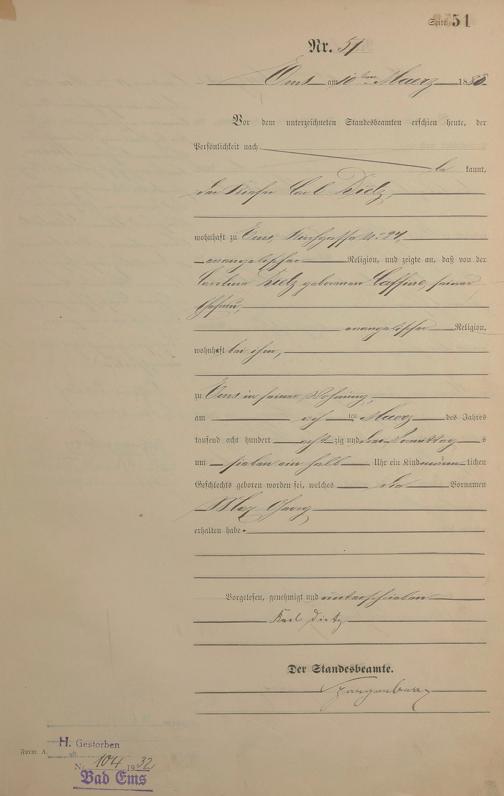 Seite 51
Nr. 51
Ems am 10 ten Maerz 188
Vor dem unterzeichneten Standesbeamten erschien heute, der
Persönlichkeit nach
be kannt,
der Küfer Carl Dietz,
wohnhaft zu Ems, Kirchgasse No 27,
evangelischer Religion, und zeigte an, daß von der
Caroline Dietz geborenen Caffine, seiner
Ehefrau,
evangelischer Religion,
wohnhaft bei ihm,
zu Ems in seiner Wohnung,
am ten Maerz des Jahres
tausend acht hundert acht zig und Vormittag s
um sieben ein halb Uhr ein Kind männ lichen
Geschlechts geboren worden sei, welches die Vornamen
Max Georg
erhalten habe.
Vorgelesen, genehmigt und unterschrieben
Karl Dietz
Der Standesbeamte.
Form. A.
H. Gestorben
N. 104 1932
Bad Ems